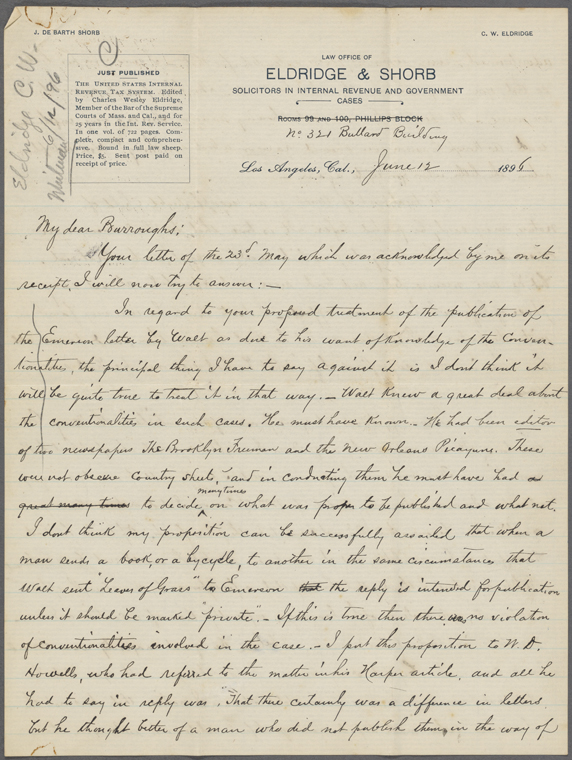 J. DE BARTH SHORB
C. W. ELDRIDGE
Eldridge C. W.
6/12/96
JUST PUBLISHED
THE UNITED STATES INTERNAL
REVENUE TAX SYSTEM. Edited
by Charles Wesley Eldridge,
Member of the Bar of the Supreme
Courts of Mass. and Cal., and for
25 years in the Int. Rev. Service.
In one vol. of 722 pages. Com-
plete, compact and comprehen-
sive. Bound in full law sheep.
Price, $5. Sent post paid on
receipt of price.
LAW OFFICE OF
ELDRIDGE & SHORB
SOLICITORS IN INTERNAL REVENUE AND GOVERNMENT
CASES
ROOMS 99 AND 100, PHILLIPS BLOCK
No 321 Bullard Building
Los Angeles, Cal., June 12 1896
My dear Burroughs:
Your letter of the 23d. May which was acknowledged by me on its
receipt, I will now try to answer:—
In regard to your proposed treatment of the publication of
the Emerson letter by Walt as due to his want of knowledge of the Conven-
tionalities, the principal thing I have to say against it is I dont think it
will be quite true to treat it in that way.— Walt knew a great deal about
the conventionalities in such cases. He must have known.— He had been editor
of two newspapers The Brooklyn Freeman and the New Orleans Picayune. These
were not obscure country sheets, and in conducting them he must have had a
great many times to decide many times on what was proper to be published and what not.
I dont think my proposition can be successfully assailed that when a
man sends a book, or a bycycle, to another in the same circumstances that
Walt sent "Leaves of Grass" to Emerson that the reply is intended for publication
unless it should be marked "private".— If this is true then there was no violation
of conventionalities involved in the case.— I put this proposition to W. D.
Howells, who had referred to the matter in his Harper article, and all he
had to say in reply was, "That there certainly was a difference in letters
but he thought better of a man who did not publish them, in the way of